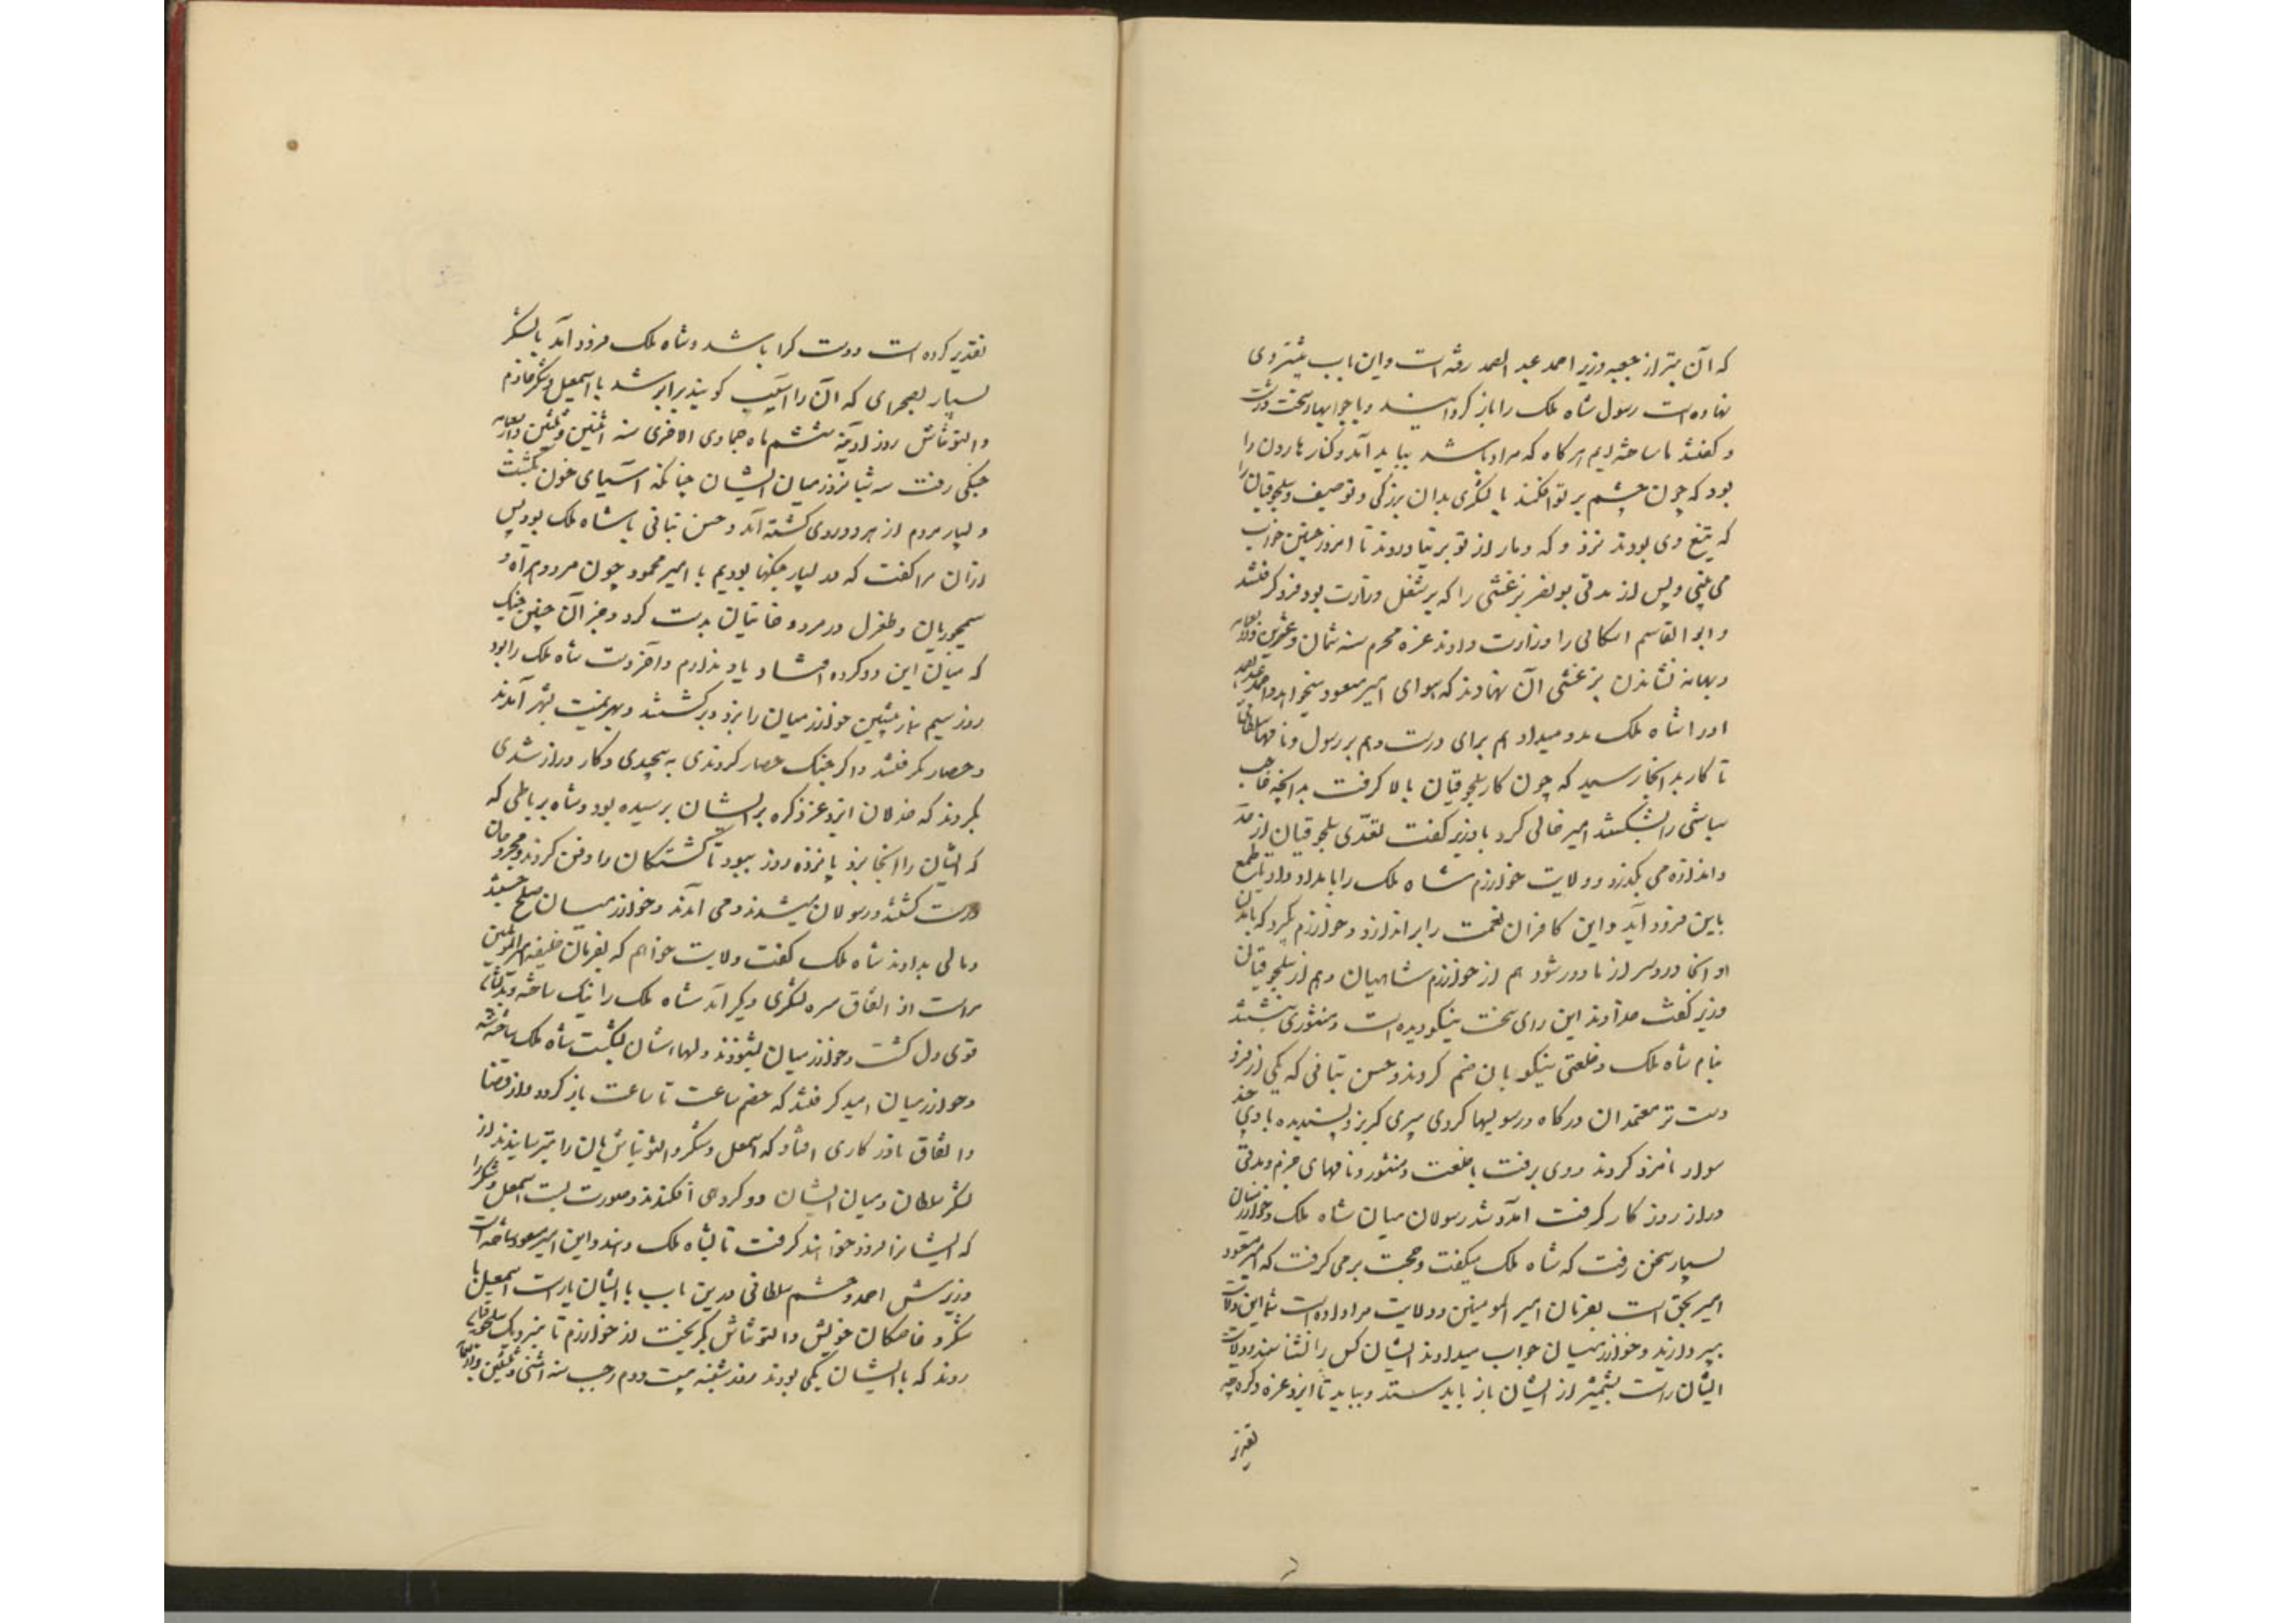 که آن تیر از جعبه وزیر احمد عبد الصمد رفته است و این باب بیشتر وی
نهاده است رسول شاه ملک را باز گردانیدند با جوابهاء سخت درشت
و گفتند ما ساخته‌ایم هر گاه که مراد باشد بباید آمد و گناه هارون را
بود که چون چشم بر تو افکند با لشکری بدان بزرگی و تو ضعیف و سلجوقیان را
که تبغ وی بودند نزد و که دمار از تو بر نیاوردند تا امروز چنین خواب
می بینی و پس از مدتی بو نصر بزغشی را که بر شغل وزارت بود فرو گرفتند
و ابو القاسم اسکافی را وزارت دادند غره محرم سنه ثمان و عشرین و اربعمایه
و بهانه نشاندن بزغشی آن نهادند که هوای امیر مسعود میخواهد و احمد عبد الصمد
او را شاه ملک مدد میداد هم برای درست و هم بر رسول و نامهاء سلطانی
تا کار بدانجا رسید که چون کار سلجوقیان بالا گرفت بدانچه حاجب
سباشی را بشکستند امیر خالی کرد با وزیر گفت تعدّی سلجوقیان از حد
و اندازه می بگذرد و ولایت خوارزم شاه ملک را باید داد تا بطمع
باین فرود آید و این کافران نعمت را بر اندازد و خوارزم بگیرد که بآمدن
او آنجا درد سر از ما دور شود هم از خوارزم شاهیان و هم از سلجوقیان
وزیر گفت خداوند این رای سخت نیکو دیده است و منشوری نبشتند
بنام شاه ملک و خلعتی نیکو بان ضم کردند و حسن تبانی که یکی از فرو
دست تر معتمدان درگاه و رسولیها کردی پیری گربز و پسندیده با وی چند
سوار نامزد کردند و وی برفت با خلعت و منشور و نامهای جزم و مدتی
دراز روز کار گرفت آمد و شد رسولان میان شاه ملک و خوارزمیان
بسیار سخن رفت که شاه ملک میگفت و حجت بر می گرفت که امیر مسعود
امیر بحق است بفرمان امیر المومنین و ولایت مرا داده است شما این ولایت
بپردازید و خوارزمیان جواب میدادند ایشان کس را نشناسند و ولایت
ایشان راست بشمشیر از ایشان باز باید ستد و بباید تا ایزد عزه ذکره چه
تقدیر
تقدیر کرده است و دست کرا باشد و شاه ملک فرود آمد با لشکر
بسیار بصحرای که آن را اسیب گویند برابر شد با اسمعیل و شکر خادم
و التونتاش روز آدینه ششم ماه جمادی الاخری سنه اثنین و ثلثین و اربعمایه
جنگی رفت سه شبانروز میان ایشان چنانکه آسیای خون بگشت
و بسیار مردم از هر دو روی کشته آمد و حسن تبانی با شاه ملک بود پس
از آن مرا گفت که در بسیار جنگها بودیم با امیر محمود چون مرو و هراه و
سیمجوریان و طغرل در مرو و خانیان بدشت کرد و جز آن چنین جنگ
که میان این دو گروه افتاد یاد ندارم و آخر دست شاه ملک را بود
روز سیم نماز پیشین خوارزمیان را بزد و برگشتند و بهزیمت بشهر آمدند
و حصار گرفتند و اگر جنگ حصار کردندی به پیچیدی و کار دراز شدی
نکردند که خذلان ایزد عز ذکره بر ایشان برسیده بود و شاه بر باطی که
که ایشان را آنجا بزد پانزده روز ببود تا کشتگان را دفن کردند و مجروحان
درست گشتند و رسولان میشدند و می آمدند و خوارزمیان صلح جستند
و مالی بدادند شاه ملک گفت ولایت خواهم که بفرمان خلیفه امیر المومنین
مراست از اتفاق سره لشکری دیگر آمد شاه ملک را نیک ساخته
قوی دل گشت و خوارزمیان بشنودند دلها ایشان بشکست شاه ملک ساخته شد
و خوارزمیان امید گرفتند که خصم ساعت تا ساعت باز گردد و از قضا
و اتفاق نادر کاری افتاد که اسمعیل و شکر و التونتاش یان را بترسانیدند از
لشکر سلطان و میان ایشان دو گروهی افکندند و صورت بست اسمعیل و شکر را
که ایشانرا فرود خواهند گرفت تا بشاه ملک دهند و این امیر مسعود ساخته است
وزیرش احمد و حشم سلطانی درین باب با ایشان یار است اسمعیل با
شکر و خاصگان خویش و التونتاش بگریخت از خوارزم تا بنزدیک سلجوقیان
روند که با ایشان یکی بودند روز شنبه بیست و دوم رجب سنه اثنی و ثلثین و اربعمایه